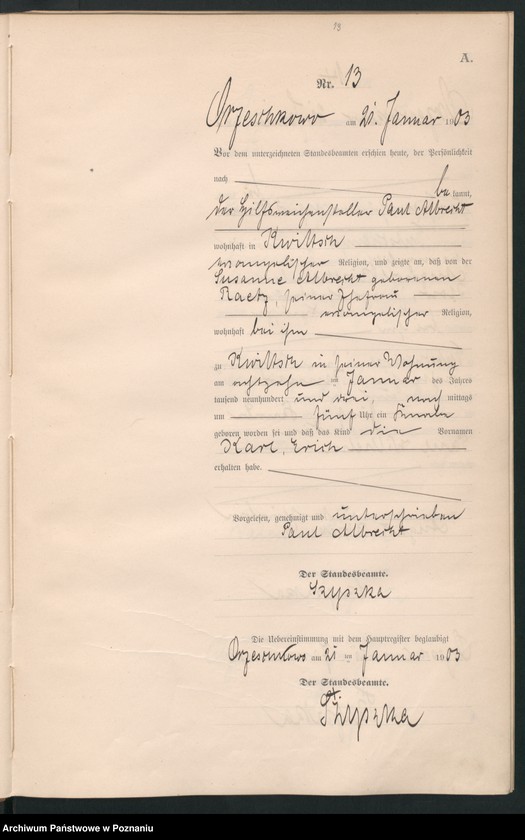 13
A.
Nr. 13
Orzeschkowo am 20. Januar 1903
Vor dem unterzeichneten Standesbeamten erschien heute, der Persönlichkeit
nach be kannt,
der Hilfsweichensteller Paul Albrecht
wohnhaft in Kwiltsch
evangelischer Religion, und zeigte an, daß von der
Susanne Albrecht geborenen
Raetz, seiner Ehefrau
evangelischer Religion,
wohnhaft bei ihm
zu Kwiltsch in seiner Wohnung
am achtzehn ten Januar des Jahres
tausend neunhundert und drei, nach mittags
um fünf Uhr ein Knabe
geboren worden sei und daß das Kind die Vornamen
Karl, Erich
erhalten habe.
Vorgelesen, genehmigt und unterschrieben
Paul Albrecht
Der Standesbeamte.
Szyszka
Die Uebereinstimmung mit dem Hauptregister beglaubigt
Orzeschkowo am 21 ten Januar 1903
Der Standesbeamte.
Szyszka
Archiwum Państwowe w Poznaniu